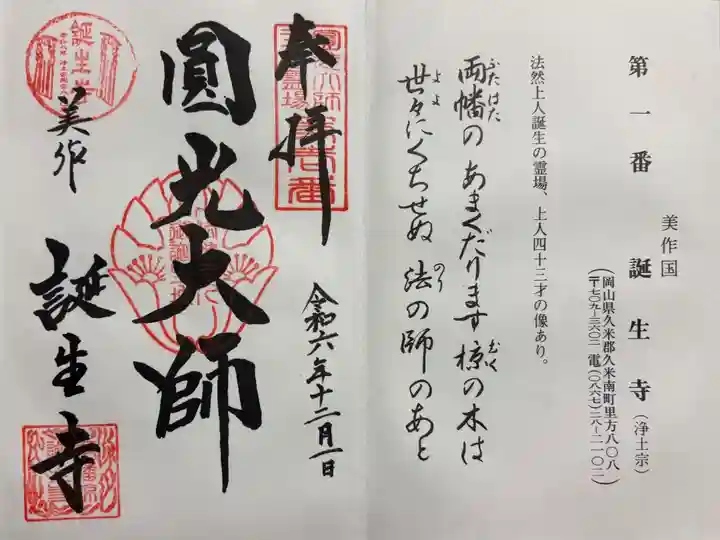 第一番 美作国 誕生寺（浄土宗）
（岡山県久米郡久米南町里方八〇八
（〒七〇九−三六〇二 電（〇八六七）二八−二一〇二）
法然上人誕生の霊場、上人四十三才の像あり。
両幡の あまくだります 椋の木は
ふたはた
むく
世々にくちせぬ 法の師のあと
よよ
のり
奉拝
令和六年十二月一日
圓光大師
美作
誕生寺
誕生寺